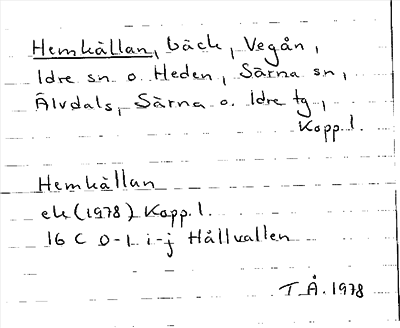 Hemkällan, bäck, Vegån,
Idre sn o. Heden, Särna sn,
Älvdals, Särna o. Idre tg,
Kopp. l.
Hemkällan
ek (1978) Kopp. l.
16 C 0-1 i-j Hållvallen
T. Å. 1978